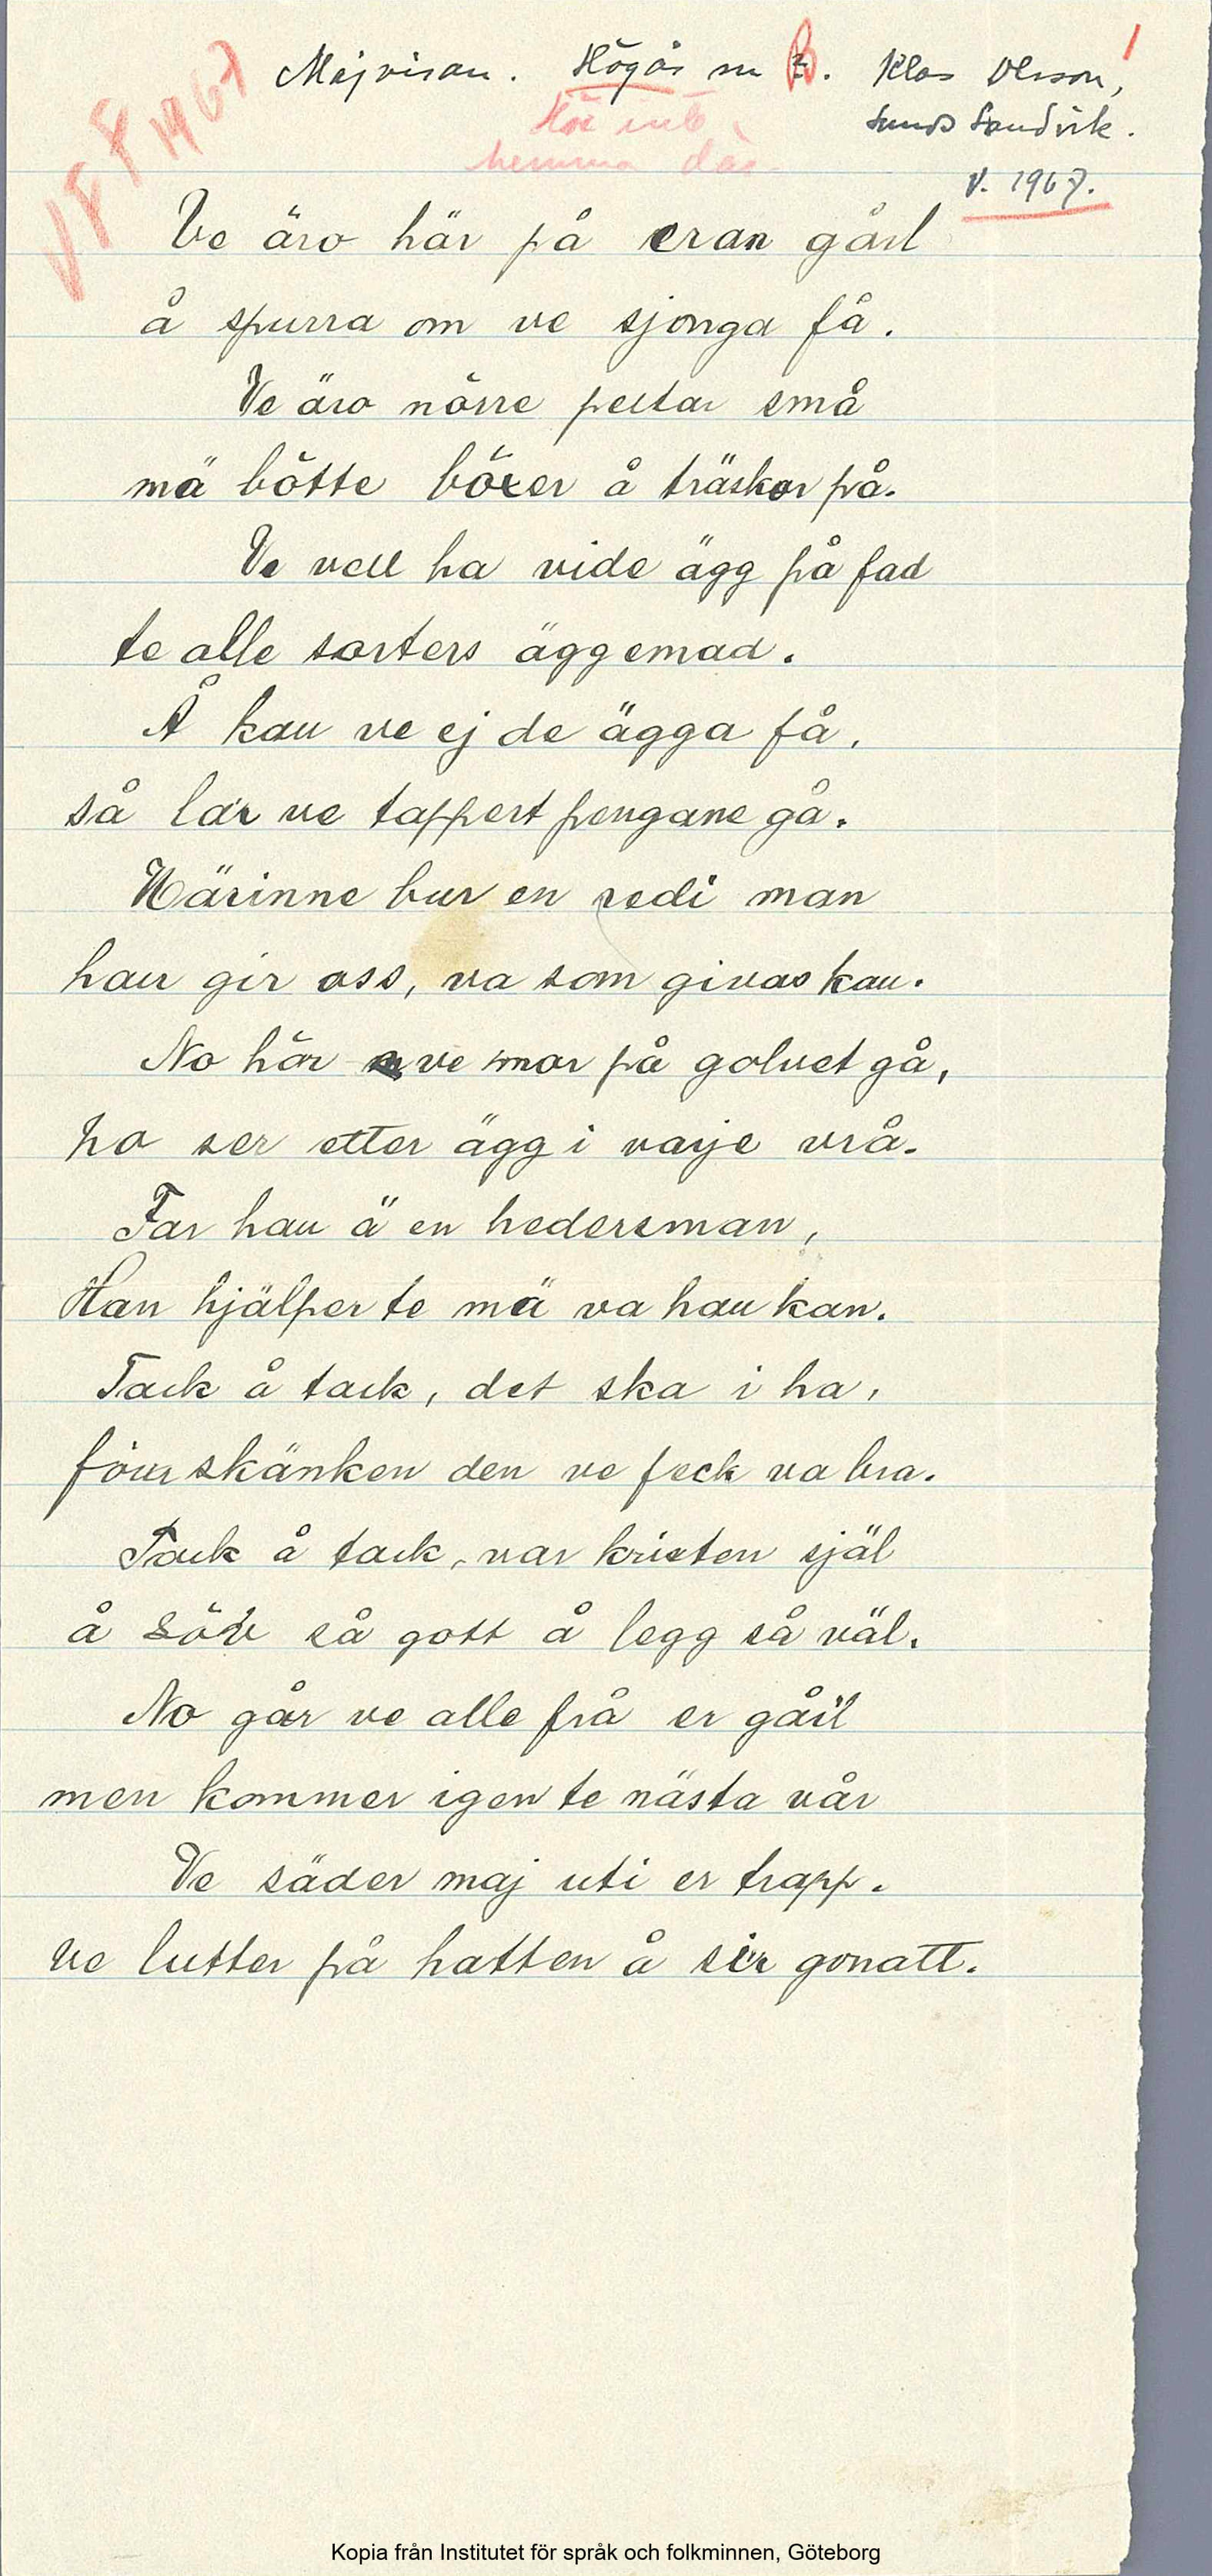 Majvisan. Högås sn B. Klas Olsson,
Sunds Sandvik.
VFF 1967
Hör inte
hemma där
V. 1967.
Ve äro här på eran gård
å spurra om ve sjonga få.
Ve äro nörre peltar små
mä bötte böxer å träskor på.
Ve vell ha vide ägg på fad
te alle sorters äggemad.
Å kan ve ej de ägga få,
så lär ve tappert pengane gå.
Härinne bur en redi man
han gir oss, va som givas kan.
No hör ve mor på golvet gå,
ho ser etter ägg i varje vrå.
Far han ä en hedersman,
Han hjälper te mä va han kan.
Tack å tack, det ska i ha,
förr skänken den ve feck va bra.
Tack å tack, var kristen själ
å söv så gott å legg så väl.
No går ve alle frå er gård
men kommer igen te nästa vår
Ve säder maj uti er trapp.
ve lutter på hatten å sir gonatt.
Kopia från Institutet för språk och folkminnen, Göteborg